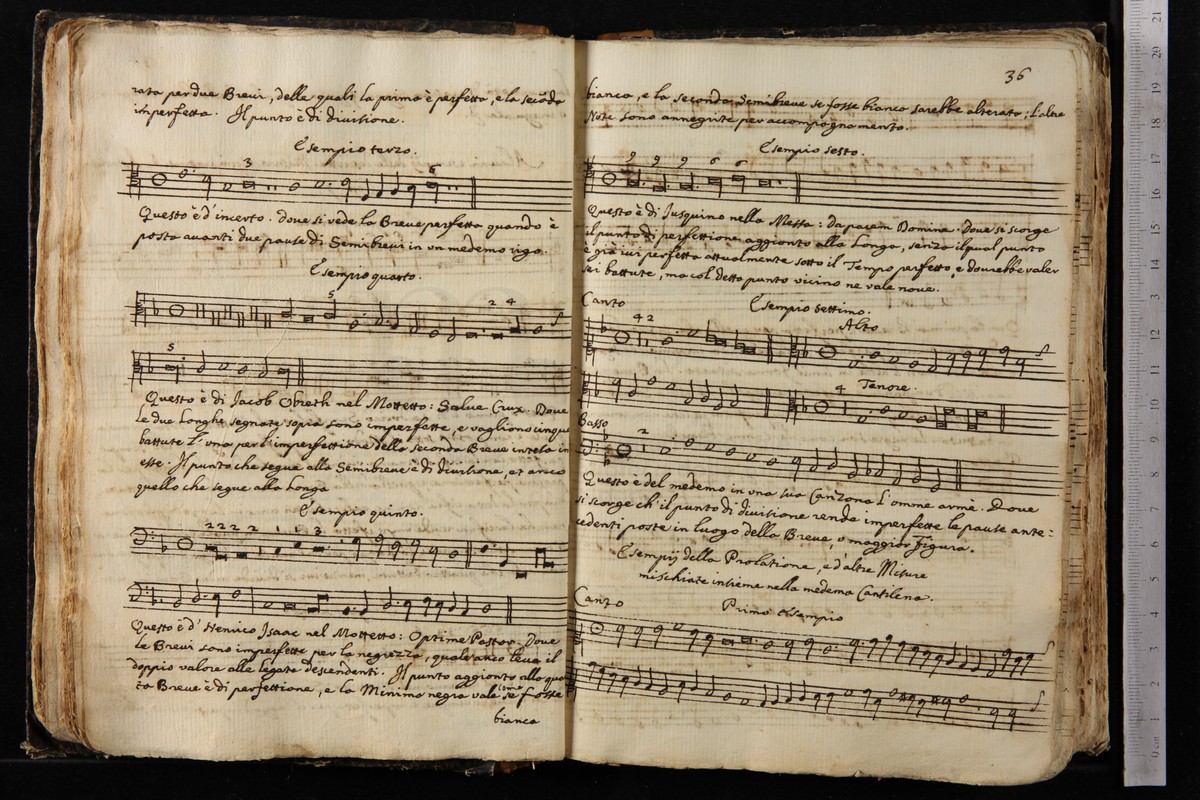 rata per due Brevi, delle quali la prima è perfetta, e la secōda
imperfetta. Il punto è di divisione.
Esempio terzo.
3
6
Questo è d'incerto. dove si vede la Breve perfetta quando è
posta avanti due pause di Semibrevi in un medemo rigo.
Esempio quarto.
5
2 4
5
Questo è di Jacob Obreth nel Mottetto: Salve Crux. Dove
le due Longhe segnate sopra sono imperfette, e vagliono cinque
battute l'una per l'imperfettione della seconda Breve intesa in
esse. Il punto che segue alla Semibreve è di divisione, et anco
quello che segue alla Longa
Esempio quinto.
2 2 2 2 2 1 1 3
Questo è d'Henrico Isaac nel Mottetto: Optime Pastor. Dove
le Brevi sono imperfette per la negrezza, quale anco leva il
doppio valore alle legate descendenti. Il punto aggionto alla quar
ta Breve è di perfettione, e la Minima negra vale se fosse
bianca
36
bianca, e la seconda Semibreve se fosse bianca sarebbe alterata; l'altre
Note sono annegrite per accompagnamento.
Esempio sesto.
9 9 9 6 6
Questo è di Jusquino nella Messa: Da pacem Domine. Dove si scorge
il punto di perfettione aggionto alla Longa, senza il qual punto
è già ivi perfetta attualmente sotto il Tempo perfetto, e dovrebbe valer
sei battute, ma col detto punto vicino ne vale nove.
Esempio settimo.
Canto
Alto
4 2
4
Tenore.
Basso
2
Questo è del medemo in una sua Canzona l'omme armè. Dove
si scorge ch'il punto di divisione rende imperfette le pause ante:
cedenti poste in luogo della Breve, o maggior Figura.
Esempij della Prolatione, e d'altre Misure
mischiate insieme nella medema Cantilena.
Canto
Primo Esempio